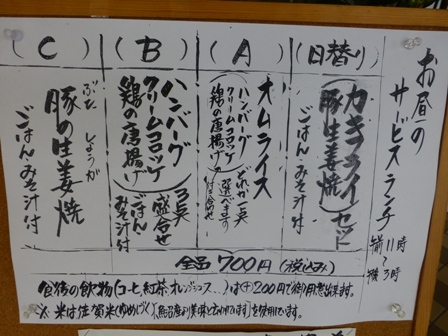 お昼の
サービスランチ
前11時
～
後3時
(日替り)
カキフライ
(豚生姜焼)セット
ごはんみそ汁付
(A)
オムライス
ハンバーグ
クリームコロッケ
鶏の唐揚げ
どれか一真
選べます
付合せ
(B)
ハンバーグ
クリームコロッケ
鶏の唐揚げ
3真
盛合せ
ごはん
みそ汁付
(C)
ぶた しょうが
豚の生姜焼
ごはんみそ汁付
全品700円(税込み)
食後の飲物(コーヒ、紅茶、オレンジジュース...)は(+)200円で御用意出来ます。
※米は佐賀米(ゆめしずく)
を使用しています。